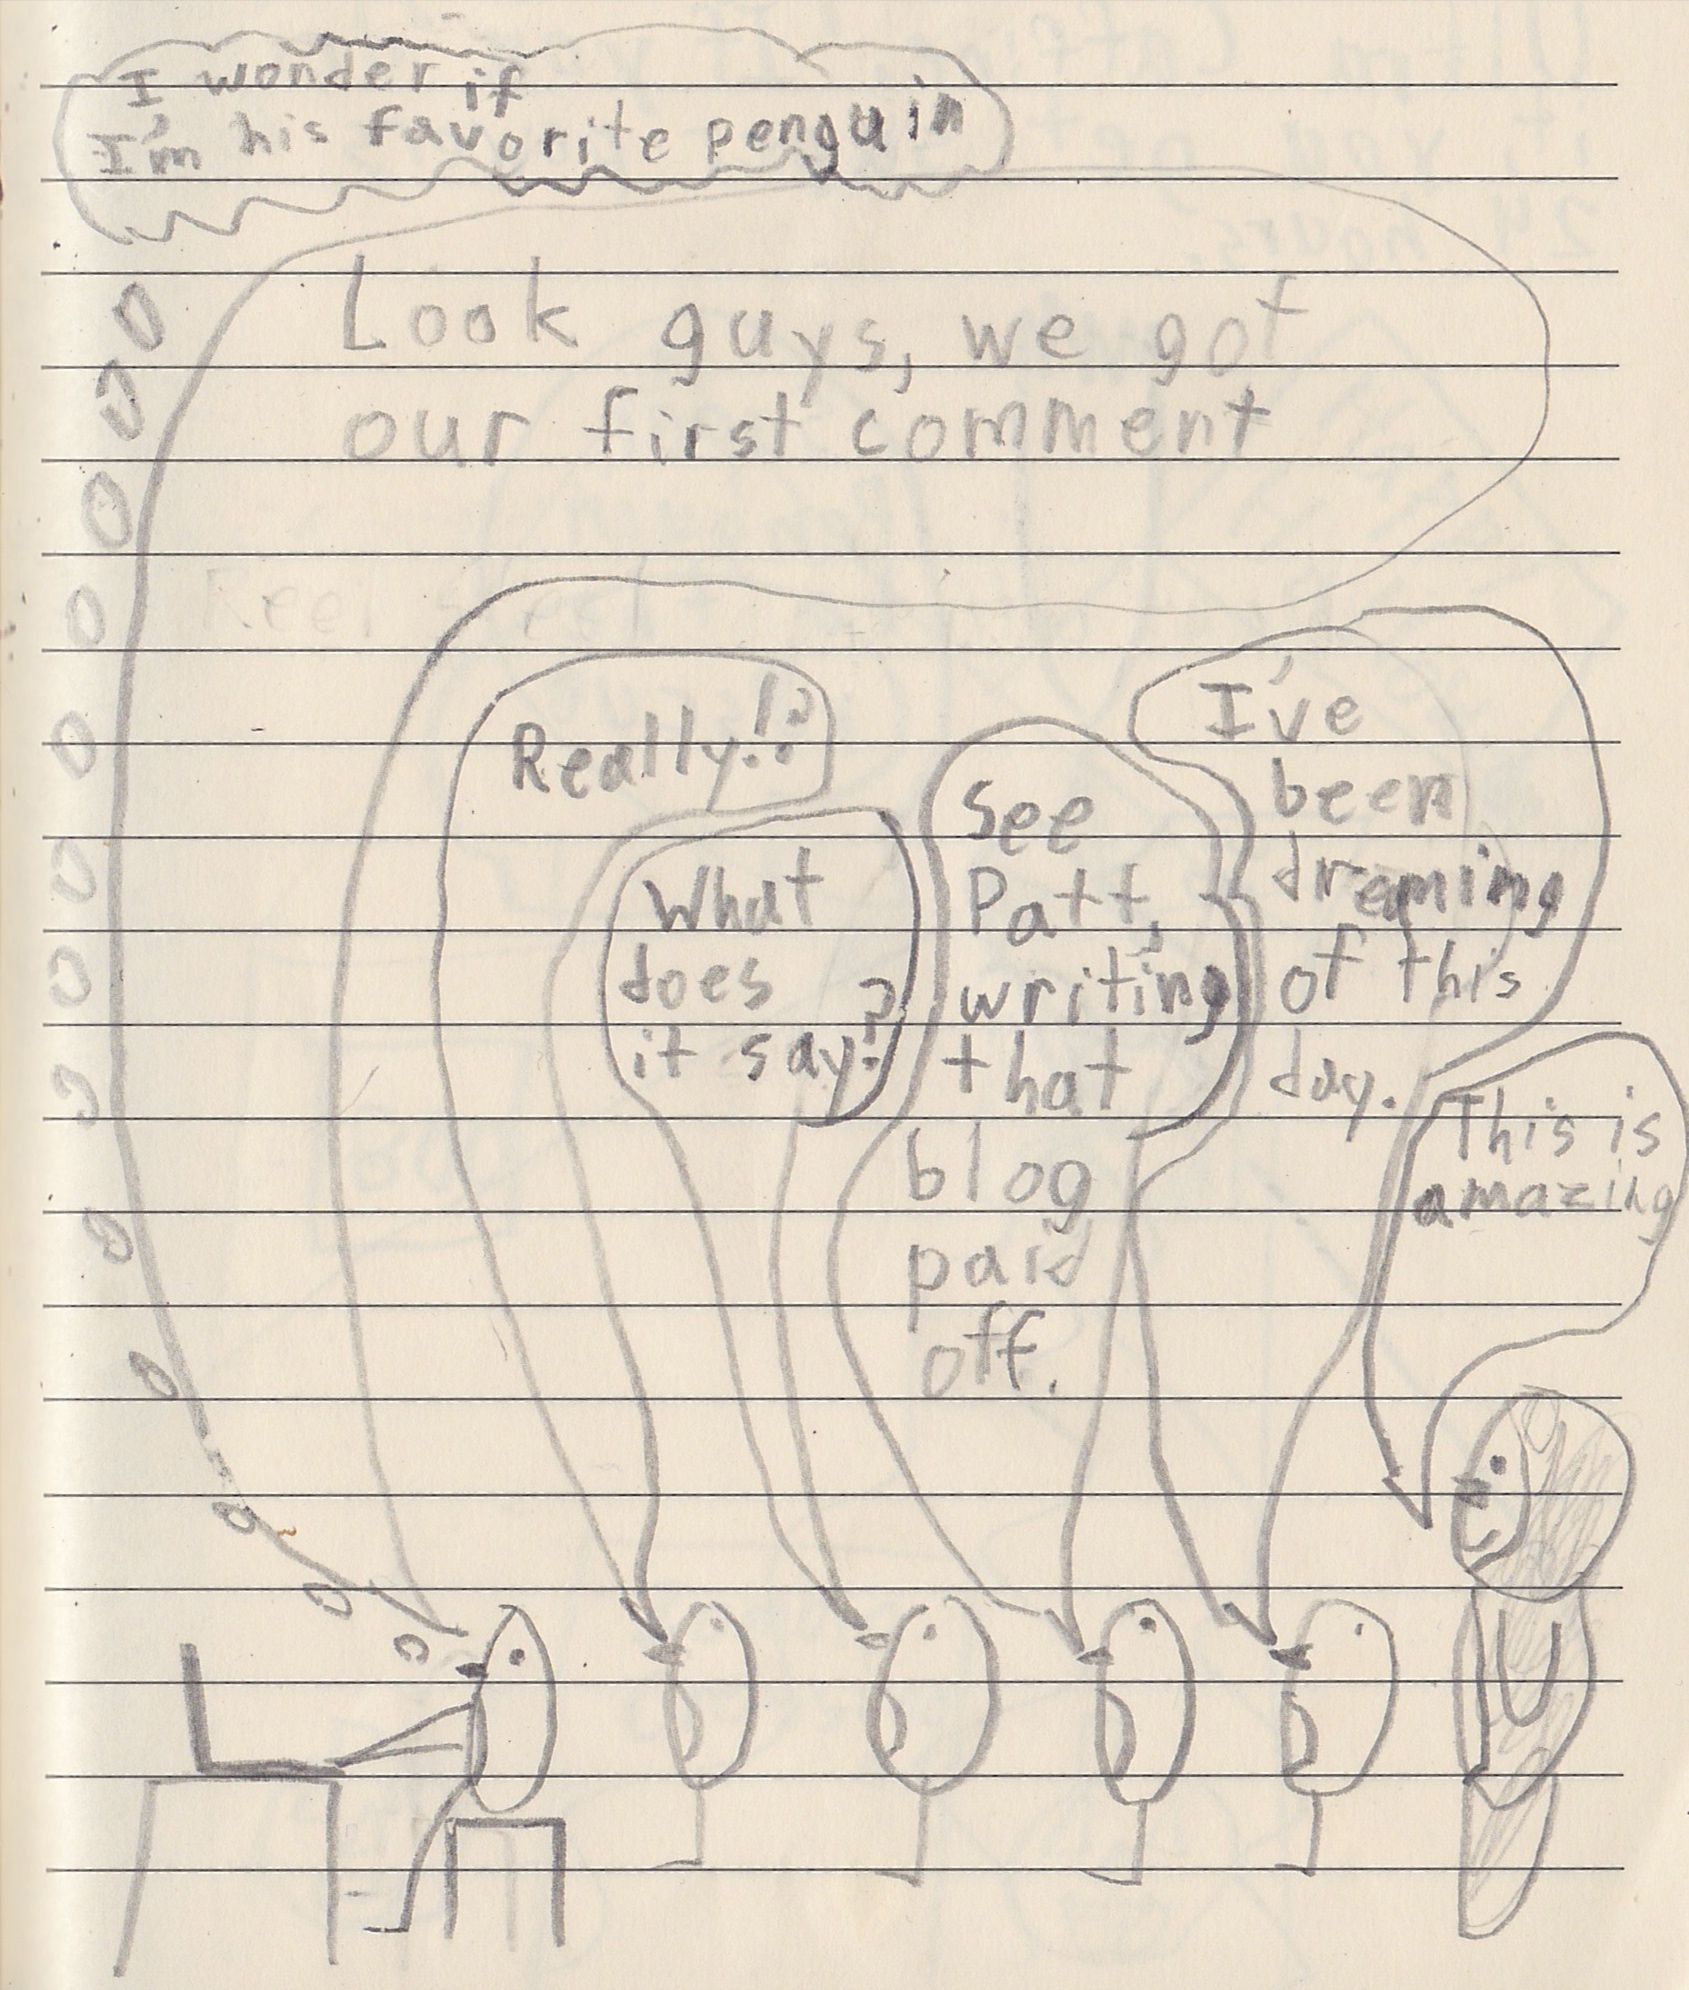 I wonder if
I'm his favorite penguin
Look guys, we got
our first comment
Really!?
What
does
it say?
See
Patt,
writing
that
blog
paid
off.
I've
been
dreaming
of this
day.
This is
amazing